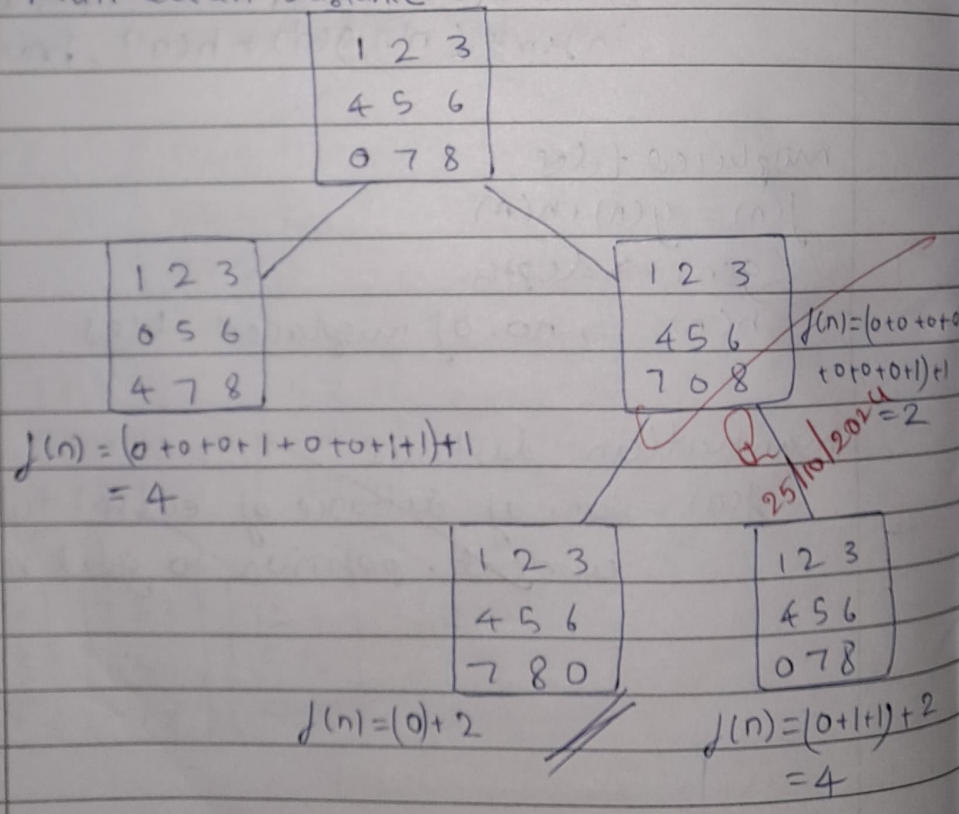 1 2 3
4 5 6
0 7 8
1 2 3
0 5 6
4 7 8
f(n) = (0+0+0+1+0+0+1+1)+1
= 4
1 2 3
4 5 6
7 0 8
f(n)=(0+0+0+0
+0+0+0+1)+1
=2
25/10/2024
1 2 3
4 5 6
7 8 0
f(n)=(0)+2
1 2 3
4 5 6
0 7 8
f(n)=(0+1+1)+2
=4